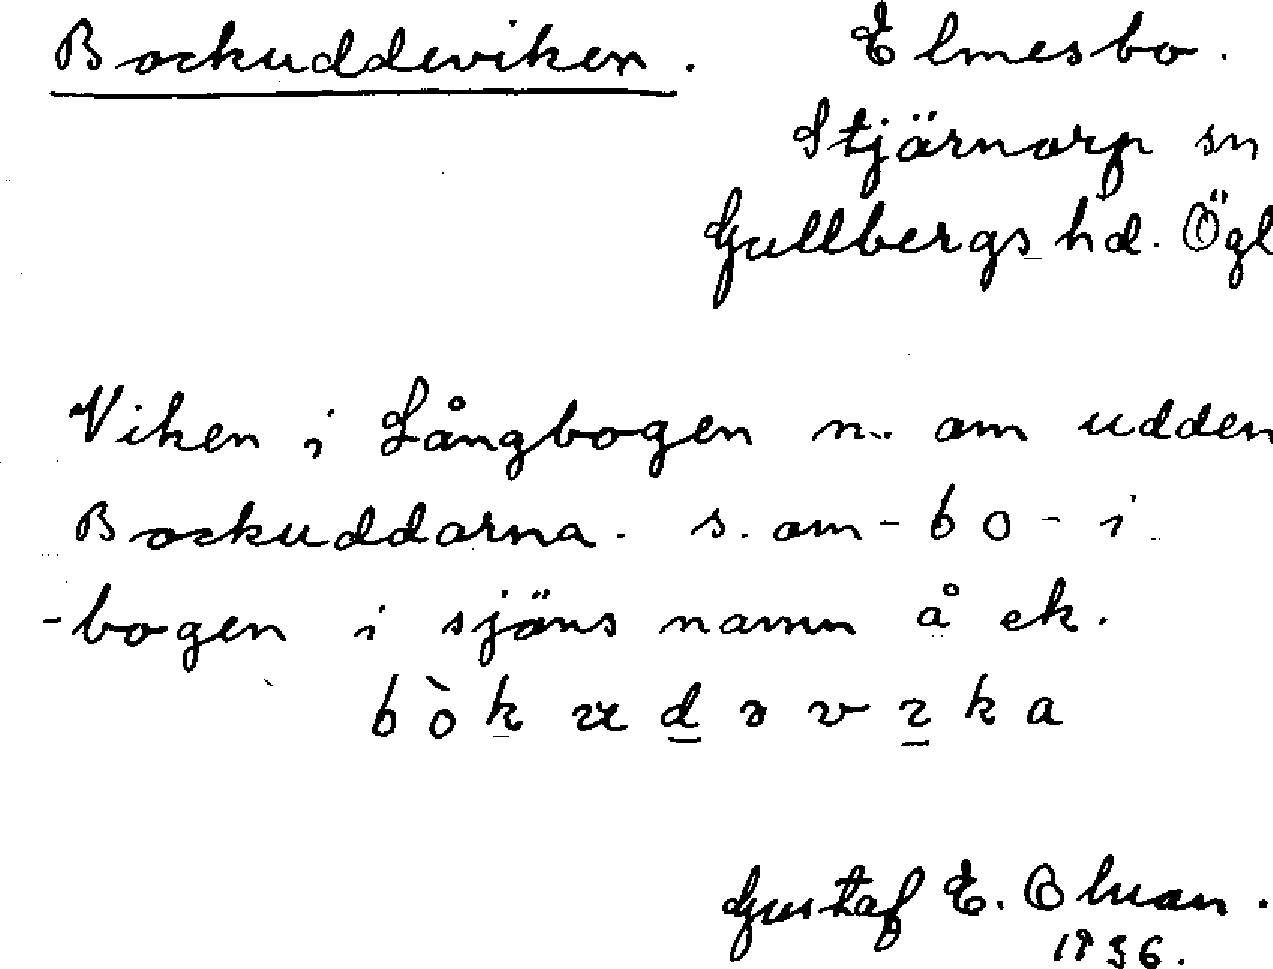 Bockuddeviken. Elmesbo.
Stjärnorp sn
Gullbergs hd. Ögl
Viken i Långbogen n. om udden
Bockuddarna. s. om - bo - i
-bogen i sjöns namn å ek.
bòk ud ə v ı ka
Gustaf E.
1936.